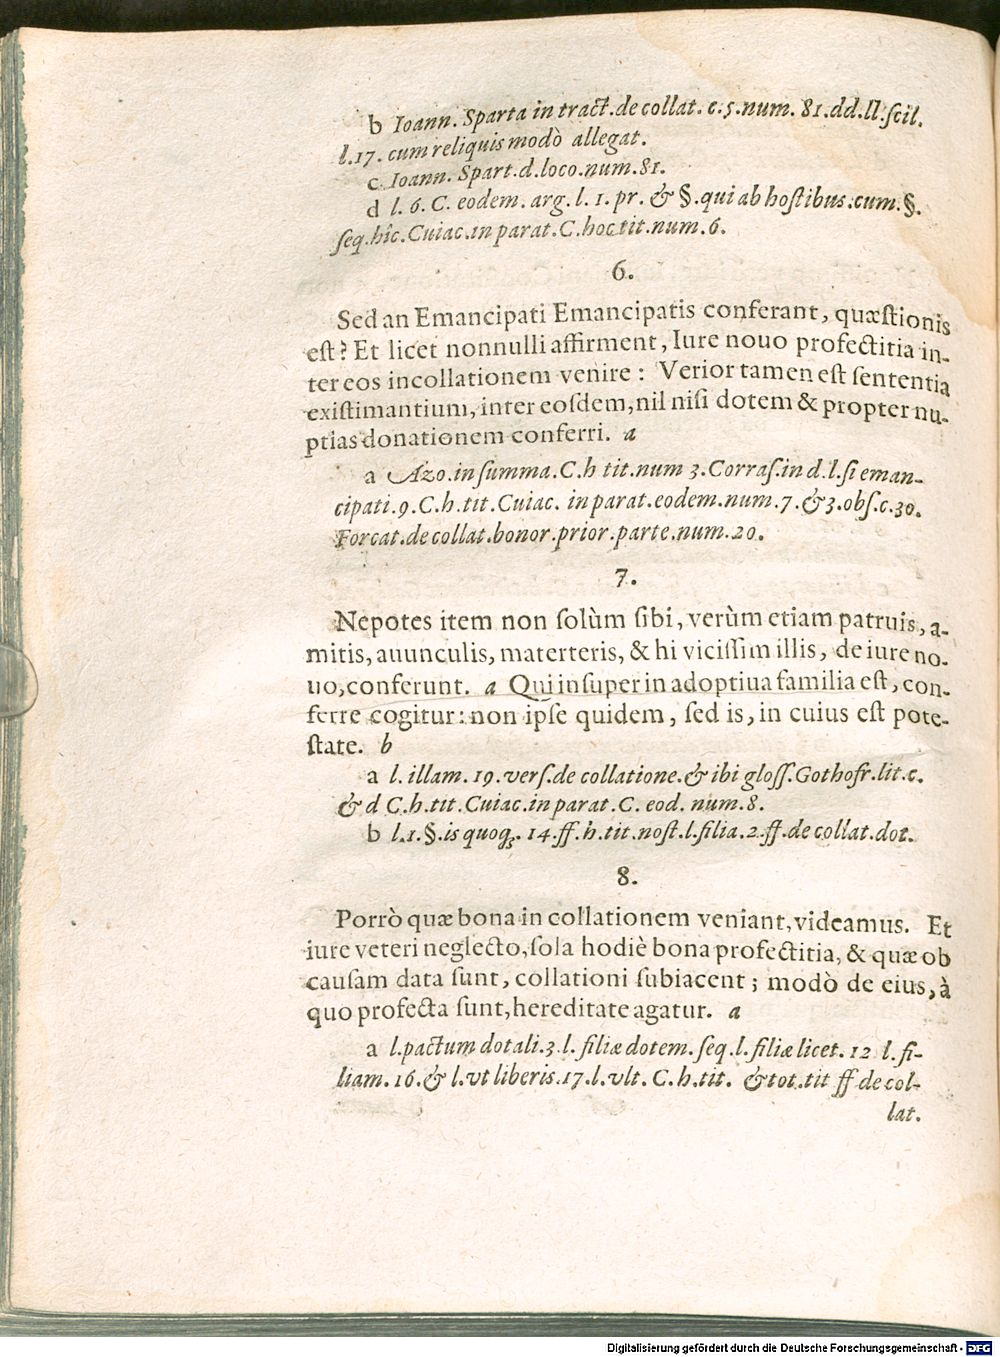 b Ioann. Sparta in tract. de collat. c. 5. num. 81. dd. ll. scil.
l. 17. cum reliquis modò allegat.
c Ioann. Spart. d. loco. num. 81.
d l. 6. C. eodem. arg. l. 1. pr. & §. qui ab hostibus. cum. §.
seq. hîc. Cuiac. in parat. C. hoc tit. num. 6.
6.
Sed an Emancipati Emancipatis conferant, quæstionis
est? Et licet nonnulli affirment, Iure nouo profectitia in-
ter eos in collationem venire: Verior tamen est sententia
existimantium, inter eosdem, nil nisi dotem & propter nu-
ptias donationem conferri. a
a Azo. in summa. C. h tit. num 3. Corras. in d. l. si eman-
cipati. 9. C. h. tit. Cuiac. in parat. eodem. num. 7. & 3. obs. c. 30.
Forcat. de collat. bonor. prior. parte. num. 20.
7.
Nepotes item non solùm sibi, verùm etiam patruis, a-
mitis, auunculis, materteris, & hi vicissim illis, de iure no-
uo, conferunt. a Qui insuper in adoptiua familia est, con-
ferre cogitur: non ipse quidem, sed is, in cuius est pote-
state. b
a l. illam. 19. vers. de collatione. & ibi gloss. Gothofr. lit. c.
& d C. h. tit. Cuiac. in parat. C. eod. num. 8.
b l. 1. §. is quoq;. 14. ff. h. tit. nost. l. filia. 2. ff. de collat. dot.
8.
Porrò quæ bona in collationem veniant, videamus. Et
iure veteri neglecto, sola hodiè bona profectitia, & quæ ob
causam data sunt, collationi subiacent; modò de eius, à
quo profecta sunt, hereditate agatur. a
a l. pactum dotali. 3. l. filiæ dotem. seq. l. filiæ licet. 12 l. fi-
liam. 16. & l. vt liberis. 17. l. vlt. C. h. tit. & tot. tit ff de col-
lat.
Digitalisierung gefördert durch die Deutsche Forschungsgemeinschaft - DFG